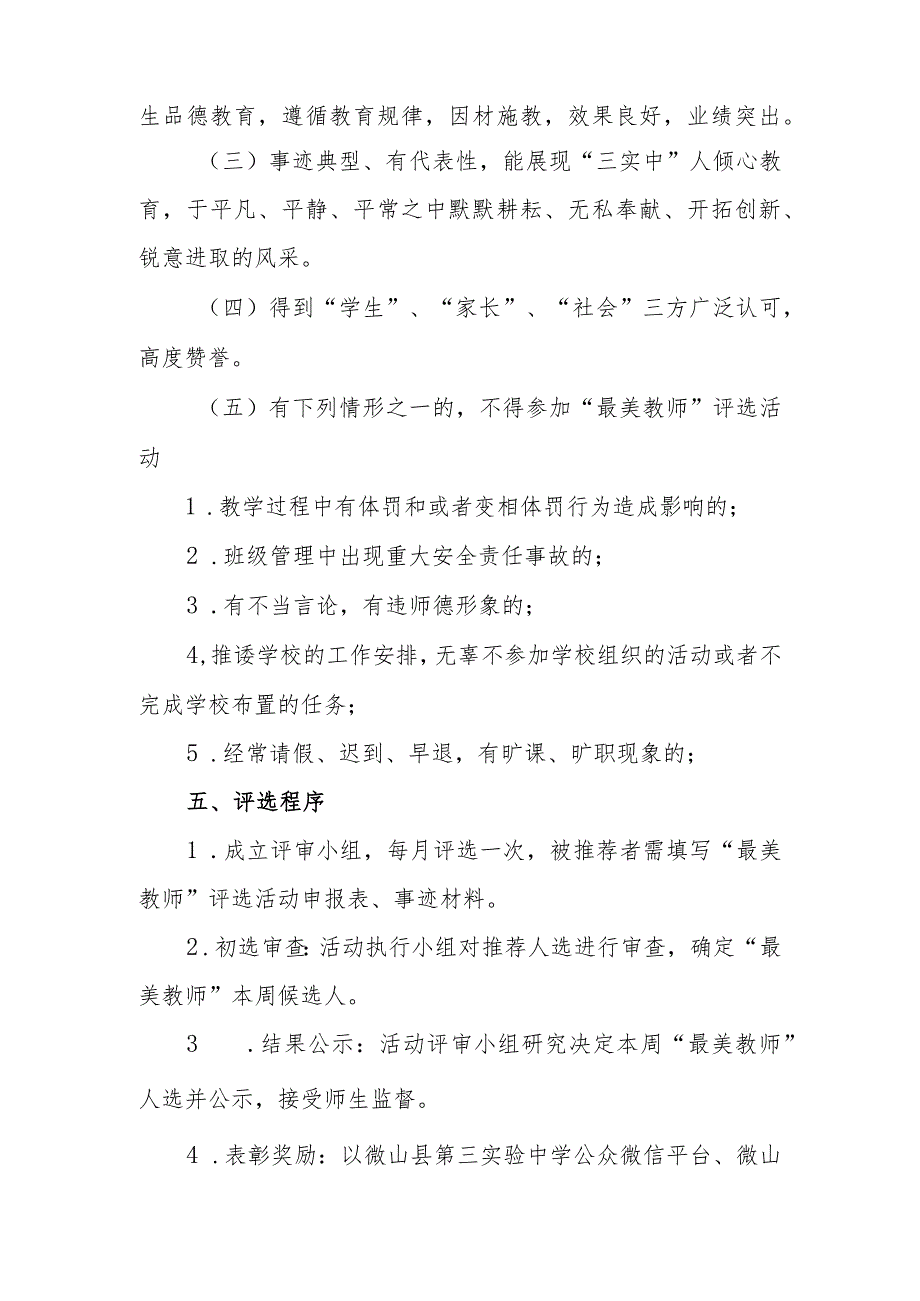 生品德教育，遵循教育规律，因材施教，效果良好，业绩突出。
（三）事迹典型、有代表性，能展现“三实中”人倾心教
育，于平凡、平静、平常之中默默耕耘、无私奉献、开拓创新、
锐意进取的风采。
（四）得到“学生”、“家长”、“社会”三方广泛认可，
高度赞誉。
（五）有下列情形之一的，不得参加“最美教师”评选活
动
1 .教学过程中有体罚和或者变相体罚行为造成影响的；
2 .班级管理中出现重大安全责任事故的；
3 .有不当言论，有违师德形象的；
4,推诿学校的工作安排，无辜不参加学校组织的活动或者不
完成学校布置的任务；
5 .经常请假、迟到、早退，有旷课、旷职现象的；
五、评选程序
1 .成立评审小组，每月评选一次，被推荐者需填写“最美
教师”评选活动申报表、事迹材料。
2.初选审查：活动执行小组对推荐人选进行审查，确定“最
美教师”本周候选人。
3 .结果公示：活动评审小组研究决定本周“最美教师”
人选并公示，接受师生监督。
4 .表彰奖励：以微山县第三实验中学公众微信平台、微山